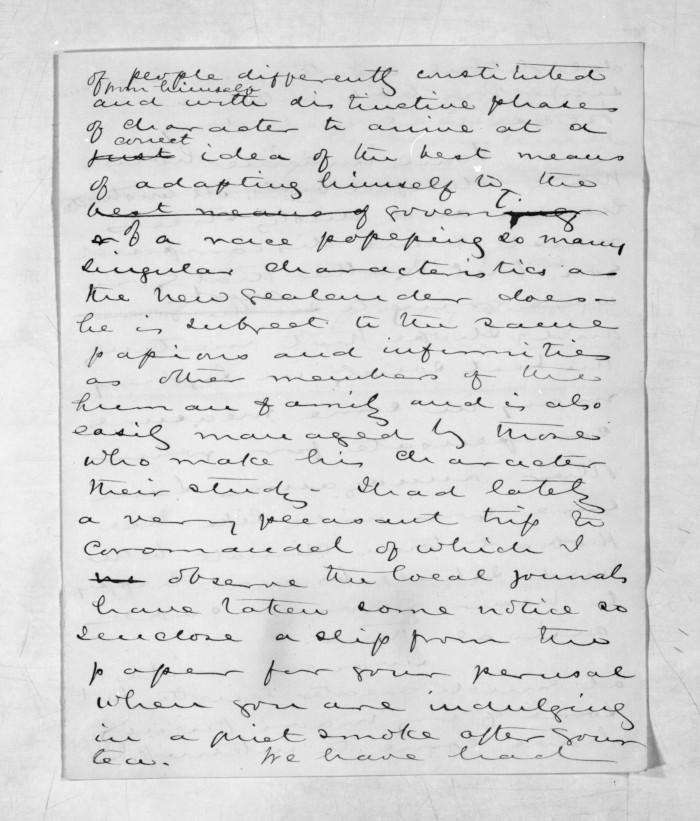 of people differently constituted
from himself
and with distinctive phases
of character to arrive at a
correct
just idea of the best means
of adapting himself to the
best means of govern
of a race possessing so many
singular characteristics as
the New Zealander does –
he is subject to the same
passions and infirmities
as other members of the
human family and is also
easily managed by those
who make his character
their study – I had lately
a very pleasant trip to
Coromandel of which I
observe the local journals
have taken some notice so
I enclose a slip from the
paper for your perusal
when you are indulging
in a quiet smoke after your
tea. We have had